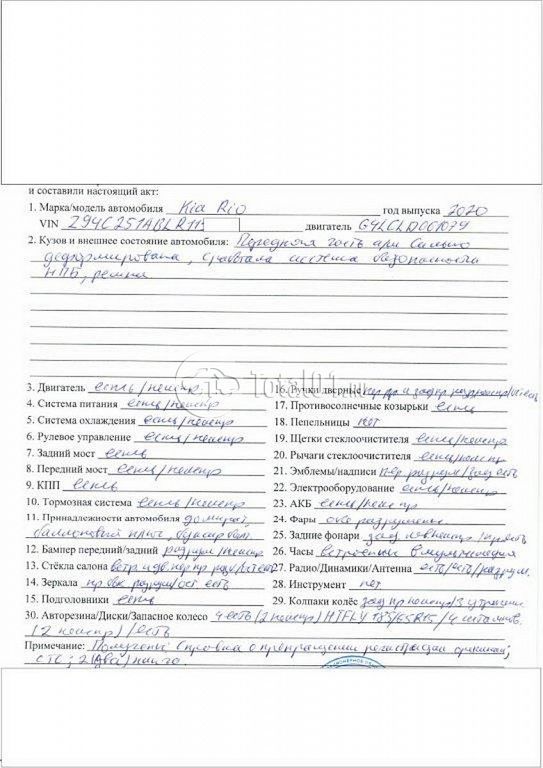 и составили настоящий акт:
1. Марка/модель автомобиля Kia Rio год выпуска 2020
VIN Z94C251ABLR11 двигатель G4LCLD001079
2. Кузов и внешнее состояние автомобиля: Передняя часть а/м сильно
деформирована, сработала система безопасности
НПБ, ремни
Total01.ru
3. Двигатель есть/неиспр
4. Система питания есть/неиспр
5. Система охлаждения есть/неиспр
6. Рулевое управление есть/неиспр
7. Задний мост есть
8. Передний мост есть/неиспр
9. КПП есть
10. Тормозная система есть/неиспр
11. Принадлежности автомобиля домкрат,
балонный ключ, буксир
12. Бампер передний/задний разруш/неиспр
13. Стёкла салона
14. Зеркала пр бок разруш/ост есть
15. Подголовники есть
16. Ручки дверные
17. Противосолнечные козырьки есть
18. Пепельницы нет
19. Щетки стеклоочистителя есть/неиспр
20. Рычаги стеклоочистителя есть/неиспр
21. Эмблемы/надписи пер разруш/зад есть
22. Электрооборудование есть/неиспр
23. АКБ есть/неиспр
24. Фары обе разрушены
25. Задние фонари зад лев неиспр/пр есть
26. Часы встроены в мультимедия
27. Радио/Динамики/Антенна есть/есть/разруш.
28. Инструмент нет
29. Колпаки колёс зад пр неиспр/3 утрачены
30. Авторезина/Диски/Запасное колесо 4 есть (2 неиспр) HIFLY 185/65R15/4 штампов.
(2 неиспр)/есть
Примечание: Получены: Справка о прекращении регистрации оригинал;
СТС; 2(два) ключа.